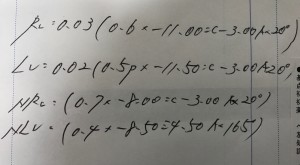 RV = 0.03 (0.6 x -11.00 = c -3.00 Ax 20°)
LV = 0.02 (0.5p x -11.50 = c -3.00 Ax 20°,
NRV = (0.7 x -8.00 = c -3.00 Ax 20°)
NLV = (0.4 x -8.50 = 4.50 Ax 165)